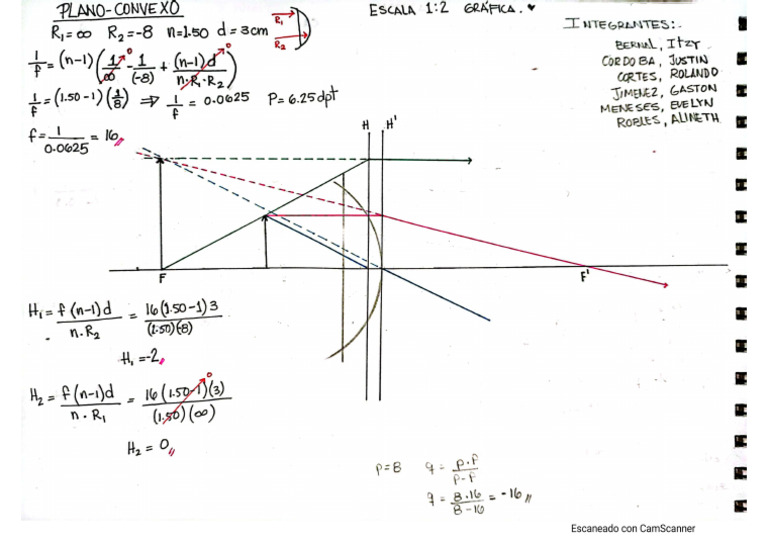 PLANO-CONVEXO
R₁=∞ R₂=-8 n=1.50 d=3cm
R₁
R₂
ESCALA 1:2 GRÁFICA. ♥
INTEGRANTES:.
BERNAL, ITZY
CORDOBA, JUSTIN
CORTES, ROLANDO
JIMENEZ, GASTON
MENESES, EVELYN
ROBLES, ALINETH
1/f = (n-1)(1/∞ - 1/(-8) + (n-1)d/n·R₁·R₂)
0 0
1/f = (1.50-1)(1/8) ⇒ 1/f = 0.0625 P=6.25dpt
f = 1/0.0625 = 16,,
H H'
F F'
H₁ = f(n-1)d/n·R₂ = 16(1.50-1)3/(1.50)(-8)
H₁=-2,,
H₂ = f(n-1)d/n·R₁ = 16(1.50-1)(3)/(1.50)(∞)
0
H₂ = 0,,
P=8 q = p·f/p-f
q = 8·16/8-16 = -16,,
Escaneado con CamScanner